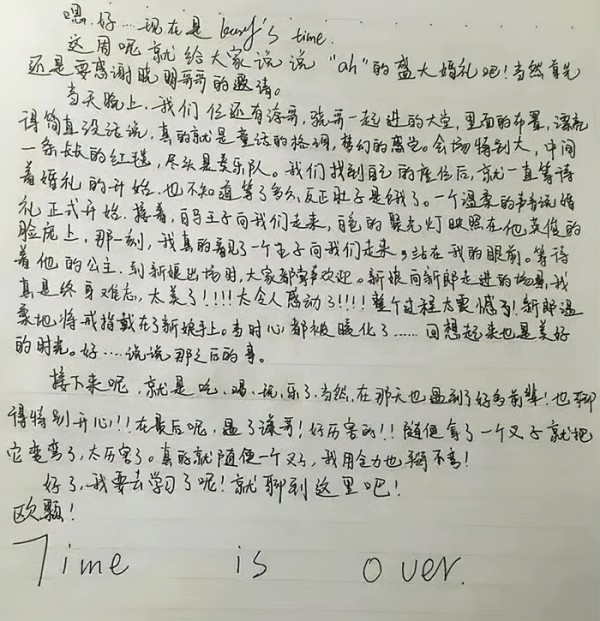 嗯.好....现在是 key's time.
这周呢就给大家说说 "ah"的盛大婚礼吧!当然,首先
还是要感谢晓明哥哥的邀请。
当天晚上.我们几位还有海哥,骁哥一起进的大堂,里面的布置,漂亮
得简直没话说,真的就是童话的格调,梦幻的感觉。会场特别大,中间
一条长长的红毯,尽头是奏乐队。我们找到自己的座位后,就一直等待
着婚礼的开始.也不知道等了多久,反正肚子是饿了。一个温柔的声音说婚
礼正式开始.接着,白马王子向我们走来,白色的聚光灯映照在他英俊的
脸庞上,那一刻,我真的看见了一个王子向我们走来,站在我的眼前。等待
着他的公主.到新娘出场时,大家都掌声欢迎。新娘向新郎走进的场景,我
真是终身难忘,太美了!!!!太令人感动了!!!!整个过程太震憾了!新郎温
柔地将戒指戴在了新娘手上。当时心都被暖化了......回想起来也是美好
的时光。好....说说那之后的事。
接下来呢,就是吃、喝、玩、乐了.当然,在那天也遇到了好多前辈!也聊
得特别开心!!!在最后呢,遇了谦哥!好厉害的!!随便拿了一个叉子就把
它变弯了,太历害了。真的就随便一个叉子,我用全力也掰不弯!
好了,我要去学习了呢!就聊到这里吧!
欧颗!
Time is over.